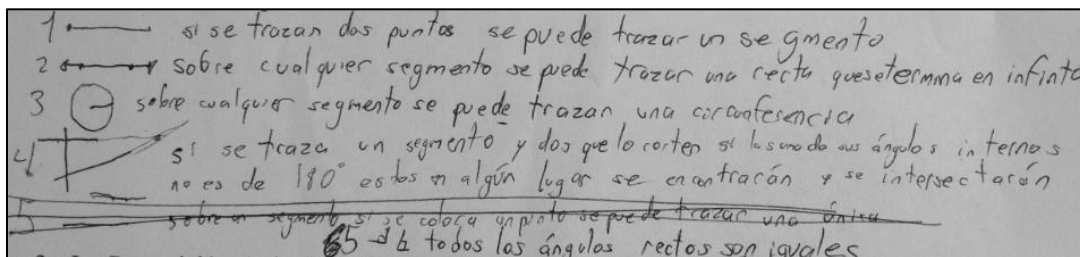 1 si se trazan dos puntos se puede trazar un segmento
2 sobre cualquier segmento se puede trazar una recta que se termina en infinto
3 sobre cualquier segmento se puede trazan una circunferencia
4 si se traza un segmento y dos que lo corten si la suma de sus ángulos internos
no es de 180° estos en algún lugar se encontrarán y se intersectarán
5 sobre un segmento si se coloca un punto se puede trazar una única
5 todos los ángulos rectos son iguales